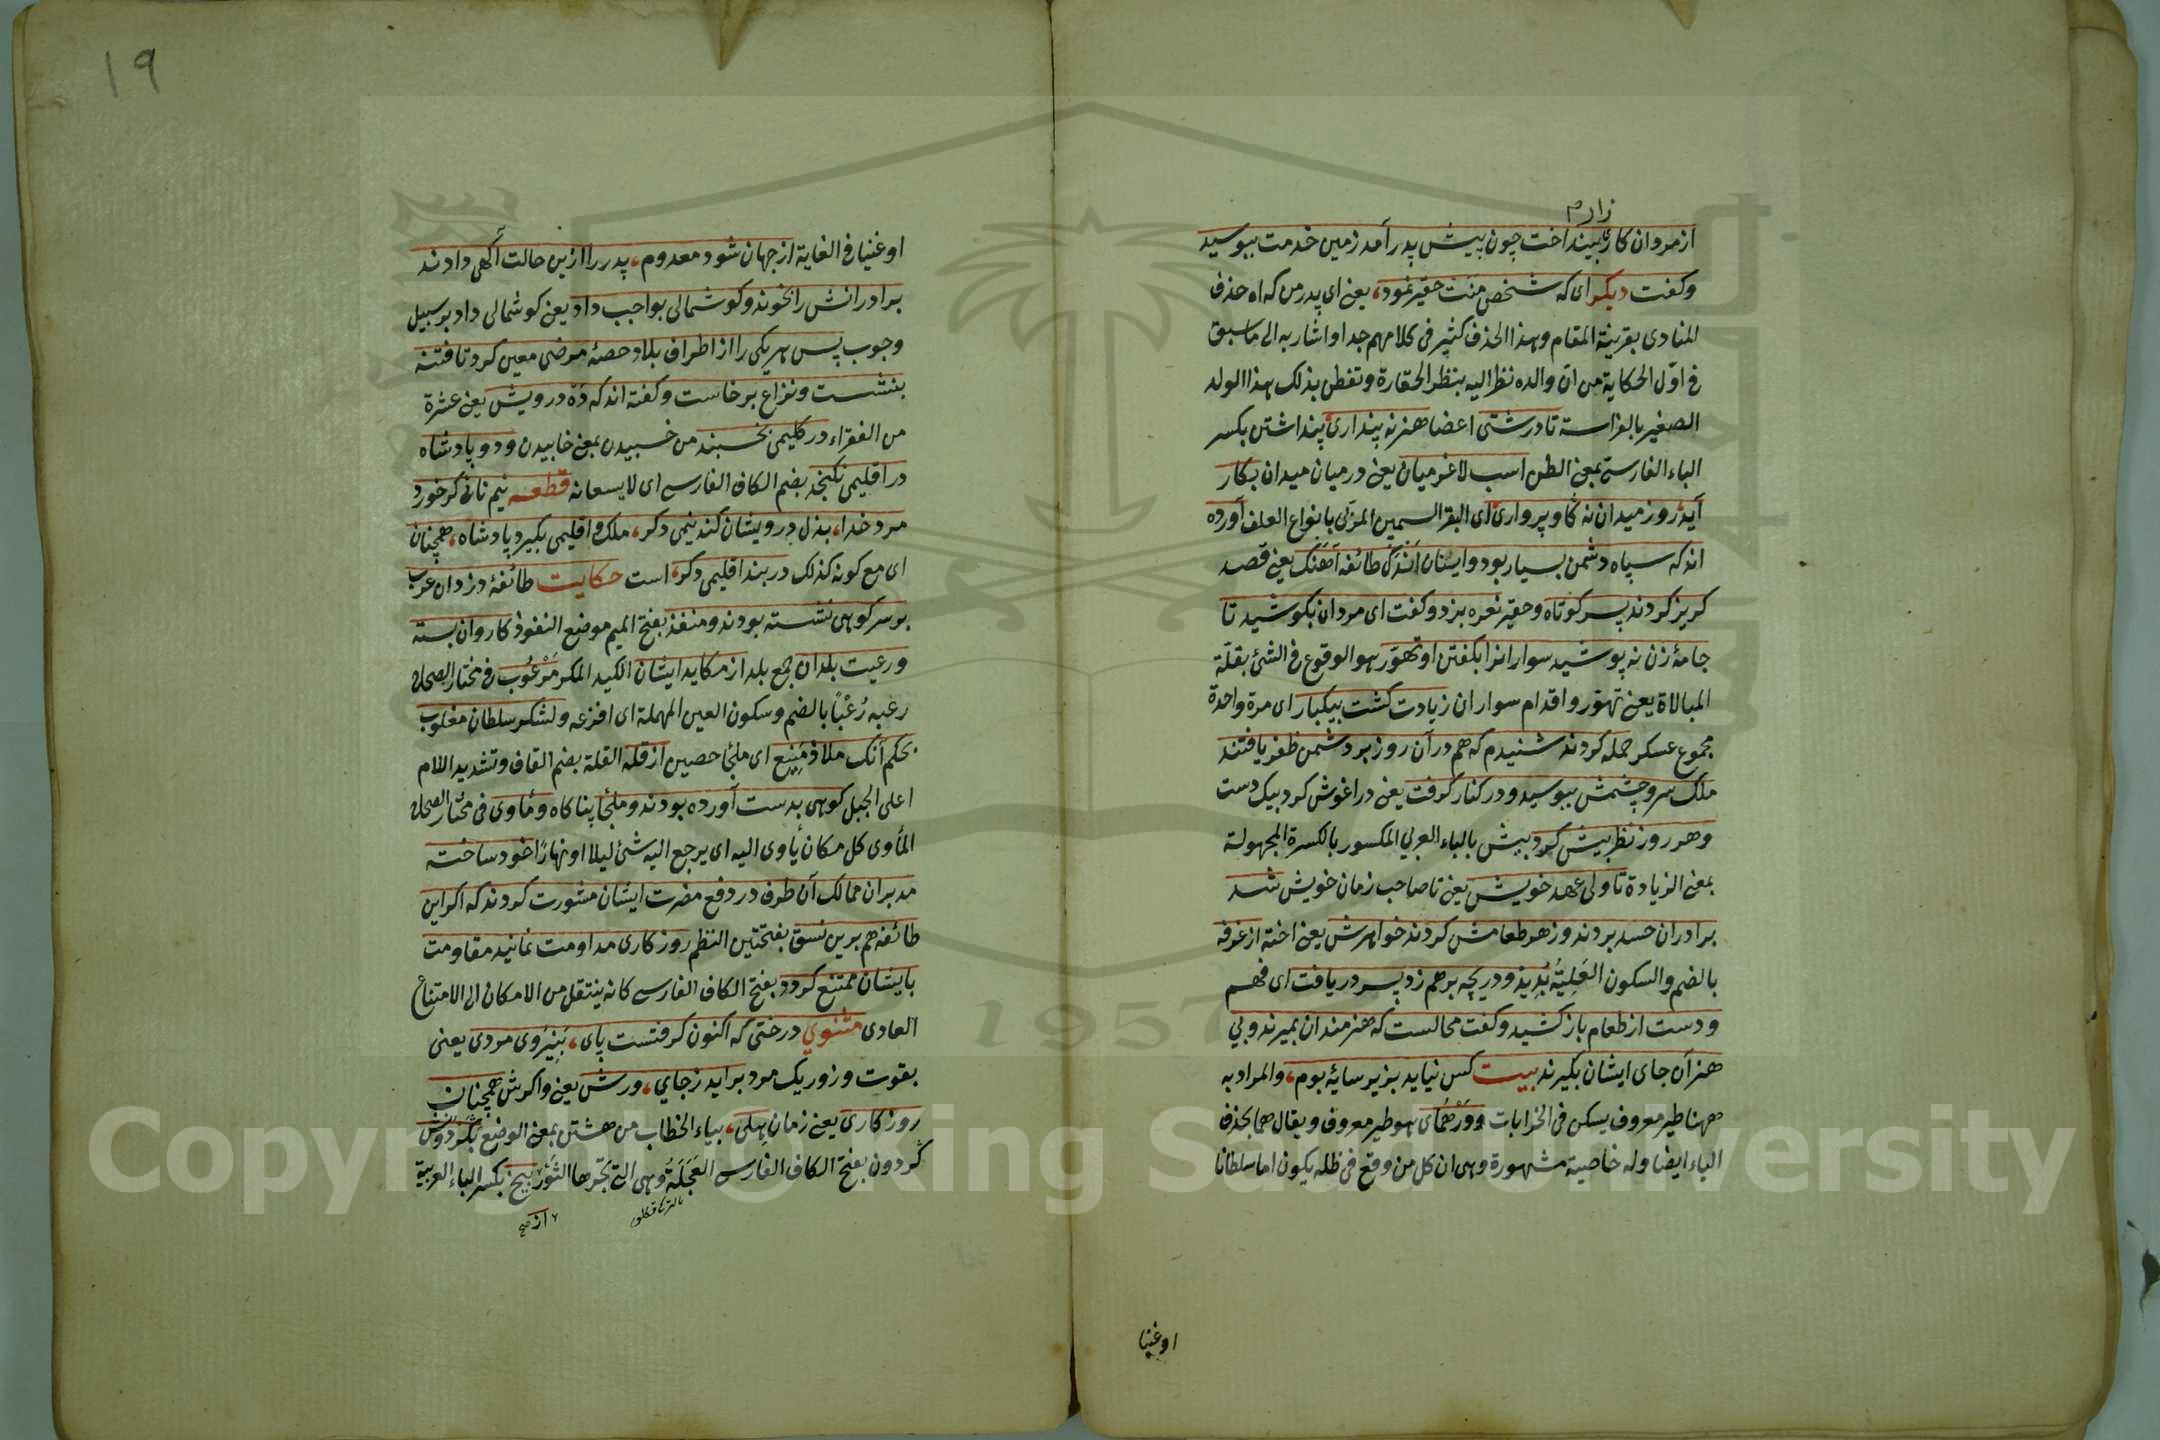 زارم
از مردان کاری بینداخت چون پیش پدر آمد زمین خدمت ببوسید
وکفت دیکر ای که شخص منت حقیر نمود، یعنی ای پدر من که اه حذف
للمنادی بقرینة المقام وهذا الحذف کثیر فی کلامهم جدا واشار به الی ما سبق
فی اوّل الحکایة من ان والده نظر الیه بنظر الحقارة وتفطن بذلک هذا الولد
الصغیر بالفراسة تا درشتی اعضا هنر نه پنداری پنداشتن بکسر
الباء الفارسی بمعنی الظن اسب لاغر میان یعنی در میان میدان بکار
آید، روز میدان نه کاو پرواری ای البقر السمین المربّی بانواع العلف آورده
اند که سپاه دشمن بسیار بود وایشان اندک طائفه آهنک یعنی قصد
کریز کردند پسر کوتاه وحقیر نعره بزد وکفت ای مردان بکوشید تا
جامهٔ زن نه پوشید سوارانرا بکفتن او تهوّر هو الوقوع فی الشئ بقلّة
المبالاة یعنی تهوّر واقدام سواران زیادت کشت بیکبار ای مرة واحدة
مجموع عسکر حمله کردند شنیدم که هم در آن روز بر دشمن ظفر یافتند
ملک سر وچشمش ببوسید ودر کنار کرفت یعنی در اغوش کرد بیک دست
وهر روز نظر بیش کرد بیش بالباء العربی المکسور بالکسرة المجهولة
بمعنی الزیادة تا ولی عهد خویش یعنی تا صاحب زمان خویش شد
برادران حسد بردند وزهر طعامش کردند خواهرش یعنی اخته از غرفه
بالضم والسکون العلیّة بدید ودریچه بر هم زد پسر دریافت ای فهم
ودست از طعام باز کشید وکفت محالست که هنرمندان بمیرند وبی
هنر آن جای ایشان بکیرند بیت کس نیاید بزیر سایهٔ بوم، والمراد به
ههنا طیر معروف یسکن فی الخرابات وور همای هو طیر معروف ویقال هما بحذف
الیاء ایضا وله خاصیة مشهورة وهی ان کل من وقع فی ظله یکون اما سلطانا
اوغنیا
١٩
اوغنیا فی الغایة از جهان شود معدوم، پدر را ازین حالت آکهی دادند
برادرانش را بخوند وکوشمالی بواجب داد یعنی کوشمالی داد بر سبیل
وجوب پس هر یکی را از اطراف بلاد حصهٔ مرضی معین کرد تا فتنه
بنشست ونزاع برخاست وکفته اند که ده درویش یعنی عشرة
من الفقراء در کلیمی بخسبند من خسبیدن بمعنی خابیدن ودو پادشاه
در اقلیمی نکنجد بضم الکاف الفارسی ای لا یسعانه قطعه نیم نانی کر خورد
مرد خدا، بذل درویشان کند نیمی دکر، ملک واقلیمی بکیرد پادشاه، همچنان
ای مع کونه کذلک در بند اقلیمی دکر، است حکایت طائفهٔ دزدان عرب
بر سر کوهی نشسته بودند ومنفذ بفتح المیم موضع النفوذ کاروان بسته
ورعیت بلدان جمع بلد از مکاید ایشان الکید المکر مرعوب فی مختار الصحاح
رعبه رُعْبًا بالضم وسکون العین المهملة ای افزعه ولشکر سلطان مغلوب
بحکم آنک ملاذ منیع ای ملجأ حصین از قلّه القلة بضم القاف وتشدید اللام
اعلی الجبل کوهی بدست آورده بودند وملجأ پناکاه ومأوی فی مختار الصحاح
المأوی کل مکان یأوی الیه ای یرجع الیه شئ لیلا او نهارًا خود ساخته
مدبران ممالک آن طرف در دفع مضرت ایشان مشورت کردند که اکر این
طائفه هم برین نسق بفتحتین النظم روزکاری مداومت نمانید مقاومت
بایشان ممتنع کردد بفتح الکاف الفارسی کانه ینتقل من الامکان الی الامتناع
العادی مثنوی درختی که اکنون کرفتست پای، بنیروی مردی یعنی
بقوت وزور یک مرد براید زجای، ورش یعنی واکرش همچنان
روزکاری یعنی زمان هلی، بیاء الخطاب من هشتن بمعنی الوضع بکردونش
کردون بفتح الکاف الفارسی العَجَلَةُ وهی التی تجرها الثور بیخ بکسر الباء العربیة
از صح